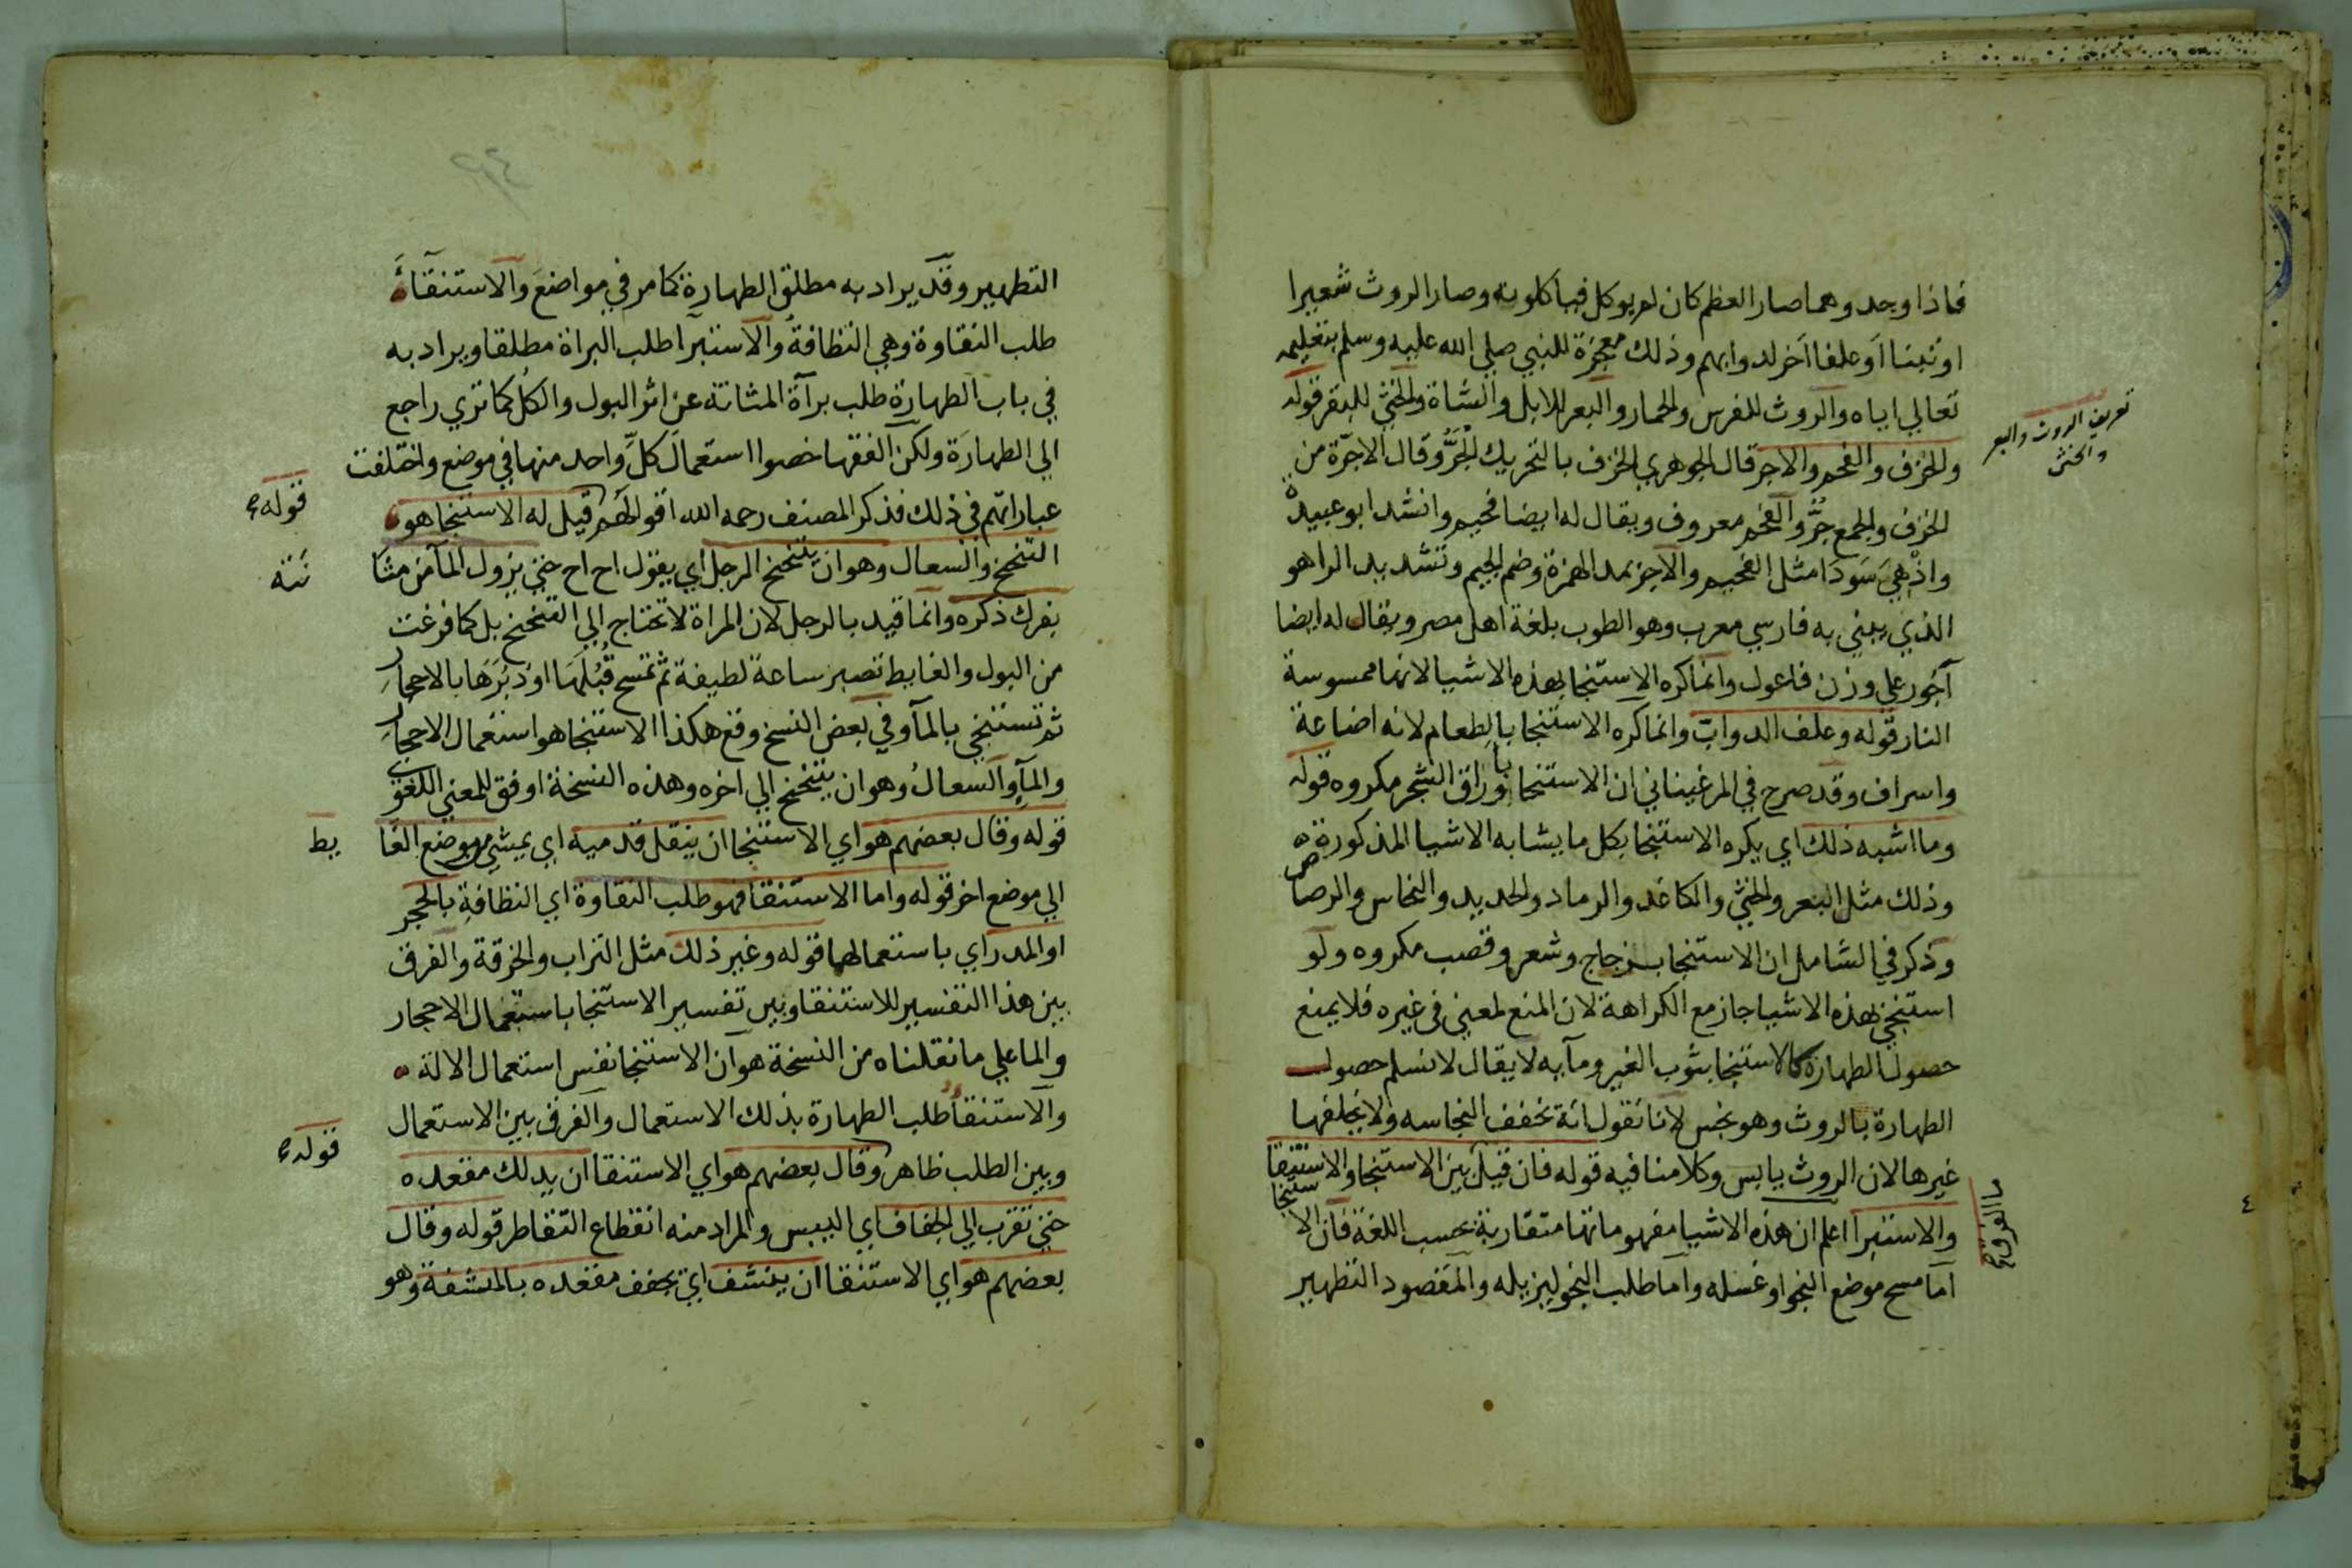 فاذا وجدوهما صار العظم كان لم يوكل فياكلونه وصار الروث شعيرا
او تبنا او علفا اخر لدوابهم وذلك معجزة للنبي صلى الله عليه وسلم بتعليمه
تعالي اياه والروث للفرس والحمار والبعر للابل والشاة والخثي للبقر قوله
والخزف والفحم والاجر قال الجوهري الخزف بالتحريك الجَرُّ وقال الاجرّة من
الخزف والجمع جرُّ والفحم معروف ويقال له ايضا فحيم وانشد ابو عبيدة
واذْ هِيَ سَودَا مثل الفحيم والاجر بمد الهمزة وضم الجيم وتشديد الرا هو
الذي يبني به فارسي معرب وهو الطوب بلغة اهل مصر ويقال له ايضا
آجُور علي وزن فاعول وانما كره الاستنجا بهذه الاشيا لانها ممسوسة
النار قوله وعلف الدواب وانما كره الاستنجا بالطعام لانه اضاعة
واسراف وقد صرح في المرغيناني ان الاستنجا باوراق الشجر مكروه قوله
وما اشبه ذلك اي يكره الاستنجا بكل ما يشابه الاشيا المذكورة
وذلك مثل البعر والخثي والكاغد والرماد والحديد والنحاس والرصاص
وذكر في الشامل ان الاستنجا بزجاج وشعر وقصب مكروه ولو
استنجي بهذه الاشيا جاز مع الكراهة لان المنع لمعني في غيره فلا يمنع
حصول الطهارة كالاستنجا بثوب الغير ومآيه لا يقال لا نسلم حصول
الطهارة بالروث وهو نجس لانا نقول انه تخفف النجاسه ولا يخلفها
غيرها لان الروث يابس وكلامنا فيه قوله فان قيل بين الاستنجا والاستنقا
والاستبرا اعلم ان هذه الاشيا مفهوماتها متقاربة بحسب اللغة فان الاستنجا
اما مسح موضع النجو او غسله واما طلب النجو ليزيله والمقصود التطهير
تعريف الروث والبعر
والخثي
التطهير وقد يراد به مطلق الطهارة كما مر في مواضع والاستنقاء
طلب النقاوة وهي النظافة والاستبرا طلب البراة مطلقا ويراد به
في باب الطهارة طلب برآة المثانة عن اثر البول والكل كما تري راجع
الي الطهارة ولكن الفقها خصوا استعمال كلّ واحد منها في موضع واختلفت
عباراتهم في ذلك فذكر المصنف رحمه الله اقوالهم قيل له الاستنجا هو
قوله
التنحنح والسعال وهو ان يتنحنح الرجل اي يقول اح اح حتي يزول المآ من مثا
نته
بفرك ذكره وانما قيد بالرجل لان المراة لا تحتاج الي التنحنح بل كما فرغت
من البول والغايط تصبر ساعة لطيفة ثم تمسح قُبُلَهَا او دُبُرَهَا بالاحجار
ثم تستنجي بالمآ وفي بعض النسخ وقع هكذا الاستنجا هو استعمال الاحجار
والمآ والسعالُ وهو ان يتنحنح الي اخره وهذه النسخة اوفق للمعني اللغوي
قوله وقال بعضهم هو اي الاستنجا ان ينقل قدميه اي يمشي من موضع الغا
يط
الي موضع اخر قوله واما الاستنقا فهو طلب النقاوة اي النظافة بالحجر
او المدر اي باستعمالهما قوله وغير ذلك مثل التراب والخرقة والفرق
بين هذا التفسير للاستنقا وبين تفسير الاستنجا باستعمال الاحجار
والما علي ما نقلناه من النسخة هو ان الاستنجا نفس استعمال الالة
والاستنقا طلب الطهارة بذلك الاستعمال والفرق بين الاستعمال
وبين الطلب ظاهر وقال بعضهم هو اي الاستنقا ان يدلك مقعده
قوله
حتي تقرب الي الجفاف اي اليبس والمراد منه انقطاع التقاطر قوله وقال
بعضهم هو اي الاستنقا ان ينشف اي يجفف مقعده بالمنشفة وهو